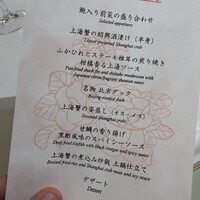 鮑入り前菜の盛り合わせ
Selected appetizers
上海蟹の紹興酒漬け（半身）
Liquor preserved Shanghai crab
ふかひれとステーキ椎茸の煮り焼き
柑橘香る上海ソース
Pan fried shark fin and shiitake mushroom with
Japanese citrus flavored Shanghai sauce
名物 北京ダック
Beijing roasted duck
上海蟹の姿蒸し（オス・メス）
Steamed Shanghai crabs
甘鯛の香り揚げ
黒酢風味のスパイシーソース
Deep fried tilefish with black vinegar and spicy sauce
上海蟹の煮込み炒飯 土鍋仕立て
Braised fried rice and Shanghai crab meat and soy sauce
デザート
Dessert